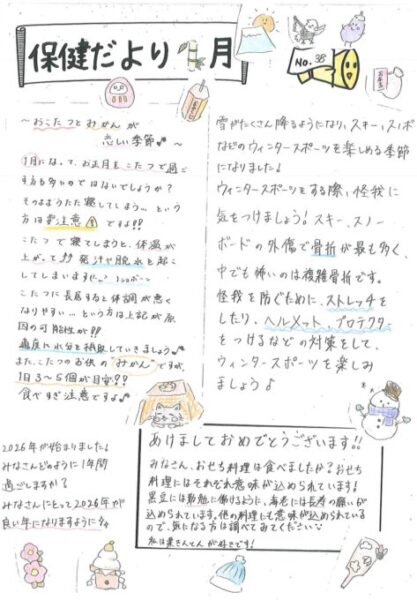 保健だより 1月
No.38
お年玉
~おこたつとみかんが
恋しい季節♪~
1月になって、お正月をこたつで過ご
す方も多いのではないでしょうか?
そのままうたた寝してしまう…という
方は要注意ですよ!!
こたつで寝てしまうと、体温が
上がって発汗や脱水を起こ
してしまいます
こたつに長居すると体調が悪く
なりやすい…という方は上記が原
因の可能性が!!
適度に水分を摂取していきましょう♪
また、こたつのお供の"みかん"ですが、
1日3~5個が目安??
食べすぎ注意ですよ♪
雪がたくさん降るようになり、スキー、スノボ
などのウィンタースポーツを楽しめる季節
になりました!
ウィンタースポーツをする際、怪我に
気をつけましょう!スキー、スノー
ボードの外傷で骨折が最も多く、
中でも怖いのは複雑骨折です。
怪我を防ぐために、ストレッチを
したり、ヘルメット、プロテクター
をつけるなどの対策をして、
ウィンタースポーツを楽しみ
ましょう♪
2026年が始まりました!
みなさんどのように1年間
過ごしますか?
みなさんにとって2026年が
良い年になりますように
あけましておめでとうございます!!
みなさん、おせち料理は食べましたか?おせち
料理にはそれぞれ意味が込められています!
黒豆には勤勉に働けるように、海老には長寿の願いが
込められています。他の料理にも意味が込められている
ので、気になる方は調べてみてください
私は栗きんとんが好きです!